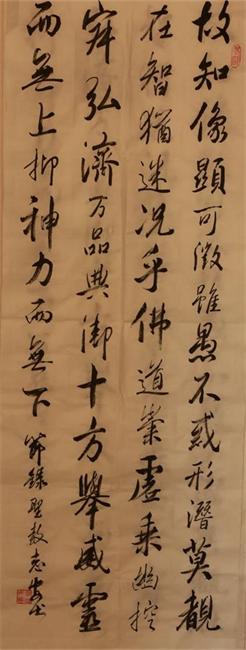 故知像顯可徵雖愚不惑形潛莫覩
在智猶迷況乎佛道崇虛乘幽控
寂弘濟万品典御十方舉威靈
而無上抑神力而無下
節錄聖教